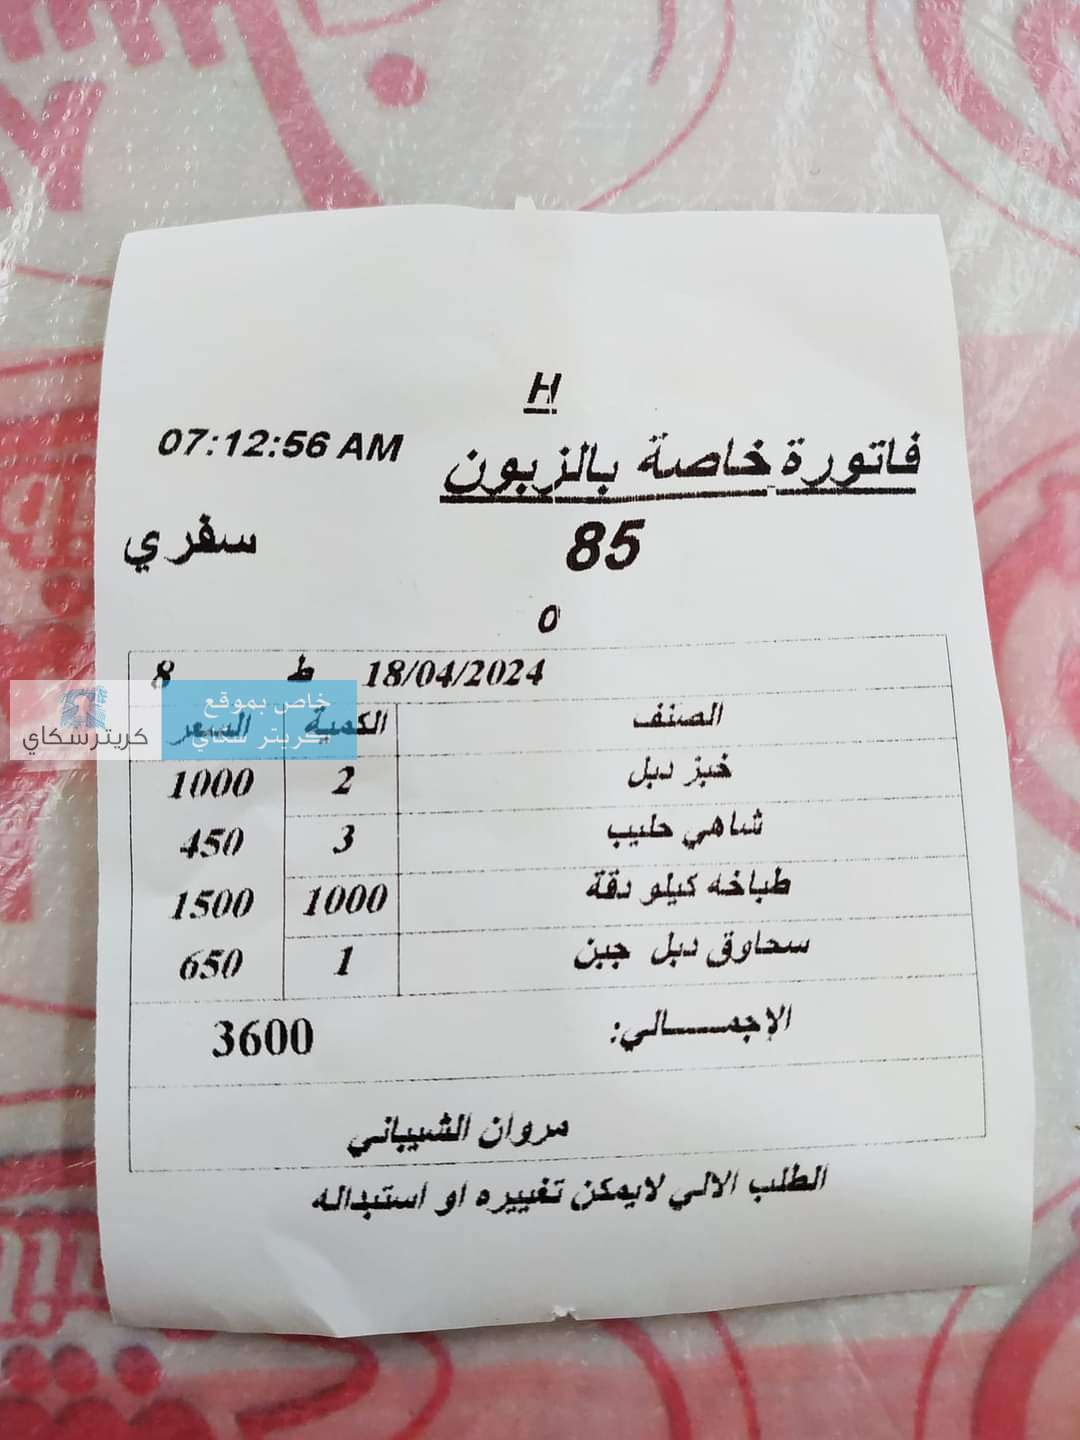 H
فاتورة خاصة بالزبون 07:12:56 AM
85 سفري
0
18/04/2024 ط 8
الصنف الكمية السعر
خاص بموقع
كريتر سكاي
كريترسكاي
خبز دبل 2 1000
شاهي حليب 3 450
طباخه كيلو دقة 1000 1500
سحاوق دبل جبن 1 650
الإجمـــــالي: 3600
مروان الشيباني
الطلب الالي لايمكن تغييره او استبداله